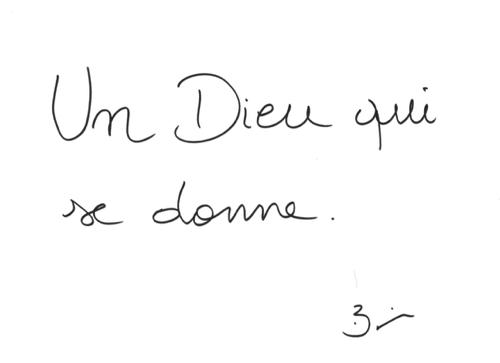 Un Dieu qui
se donne.